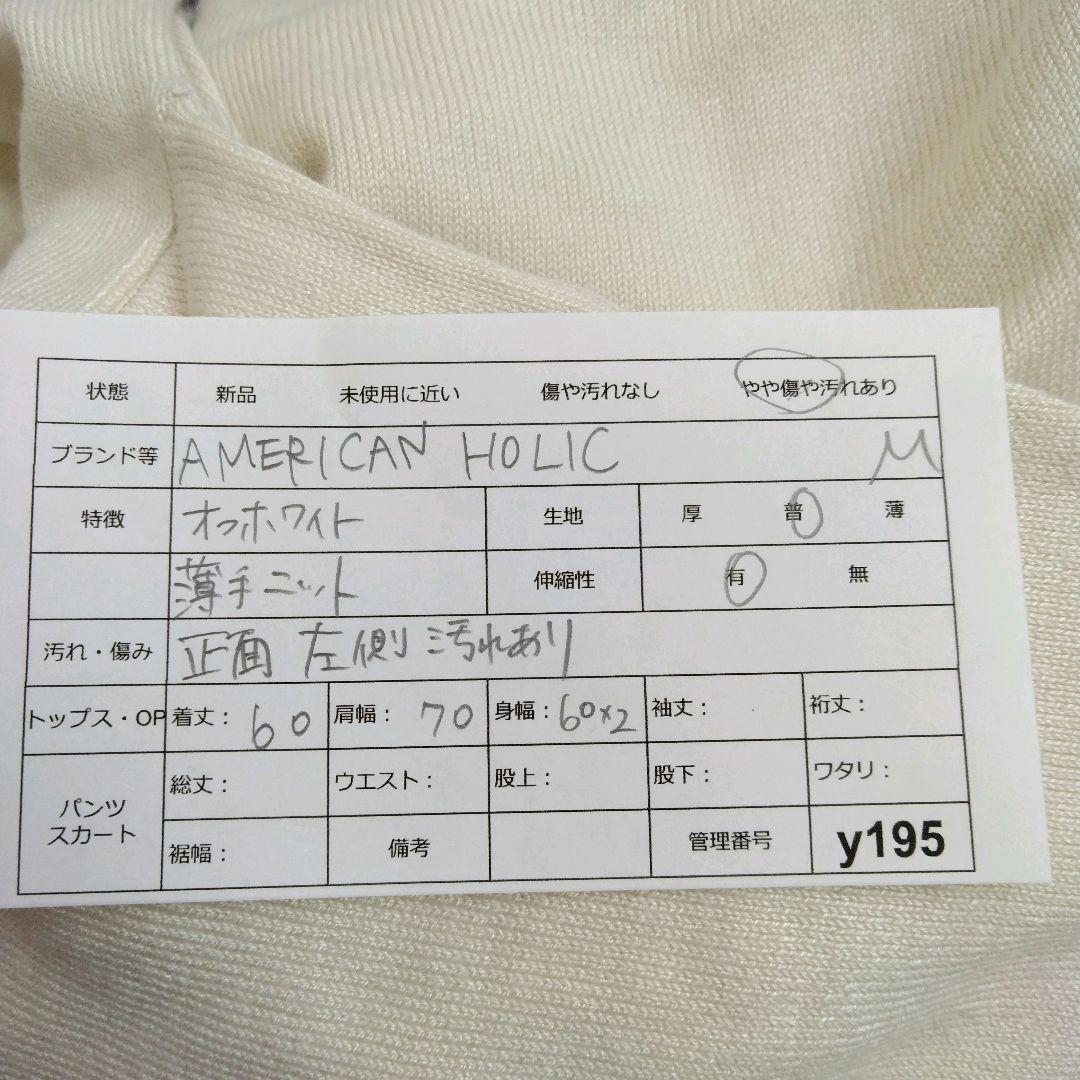 状態 新品 未使用に近い 傷や汚れなし やや傷や汚れあり
ブランド等 AMERICAN HOLIC M
特徴 オフホワイト 生地 厚 普 薄
薄手ニット 伸縮性 有 無
汚れ・傷み 正面 左側 汚れあり
トップス・OP 着丈: 60 肩幅: 70 身幅: 60×2 袖丈: 裄丈:
パンツ スカート 総丈: ウエスト: 股上: 股下: ワタリ:
裾幅: 備考 管理番号 y195